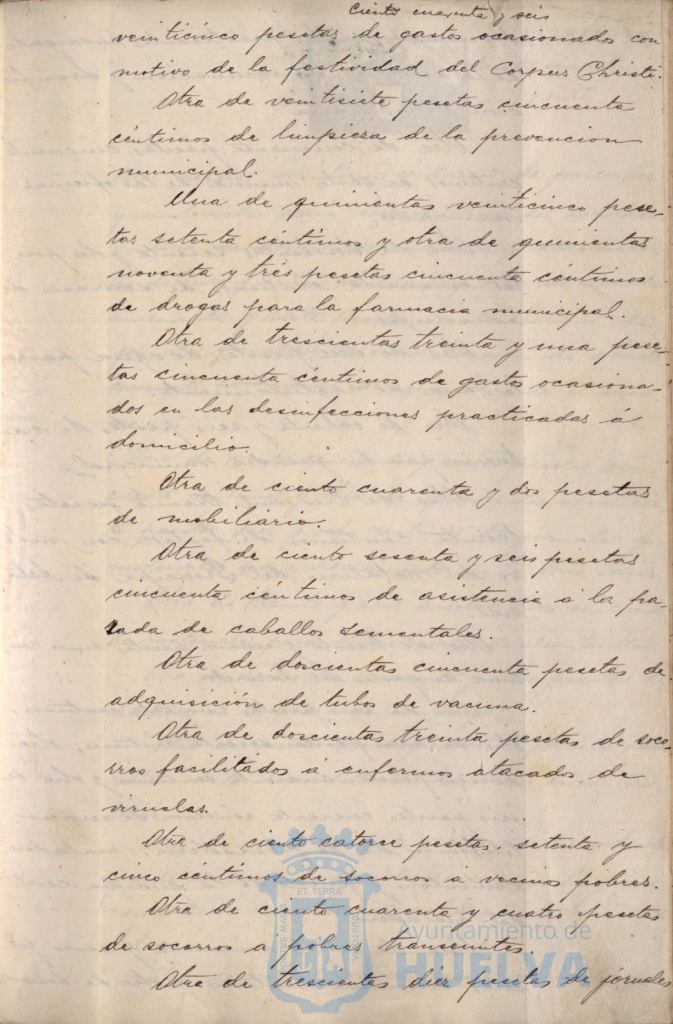 ciento cuarenta y seis
veinticinco pesetas de gastos ocasionados con
motivo de la festividad del Corpus Christi.
Otra de veintisiete pesetas cincuenta
céntimos de limpieza de la prevencion
municipal.
Una de quinientas veinticinco pese-
tas setenta céntimos y otra de quinientas
noventa y trés pesetas cincuenta céntimos
de drogas para la farmacia municipal.
Otra de trescientas treinta y una pese-
tas cincuenta céntimos de gastos ocasiona-
dos en las desinfecciones practicadas á
domicilio.
Otra de ciento cuarenta y dos pesetas
de mobiliario.
Otra de ciento sesenta y seis pesetas
cincuenta céntimos de asistencia á la pa-
rada de caballos sementales.
Otra de doscientas cincuenta pesetas de
adquisición de tubos de vacuna.
Otra de doscientas treinta pesetas de soco-
rros facilitados á enfermos atacados de
viruelas.
Otra de ciento catorce pesetas setenta y
cinco céntimos de socorros á vecinos pobres.
Otra de ciento cuarenta y cuatro pesetas
de socorros á pobres transeuntes
Otra de trescientas diez pesetas de jornales
ET TERRÆ
Ayuntamiento de
HUELVA